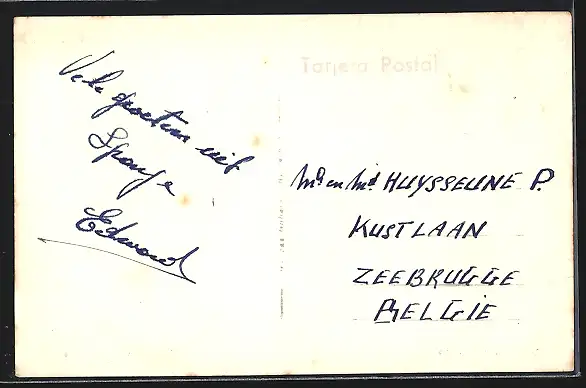 Tarjeta Postal
Vele groeten uit
Spanje
Edward
Mr en Md HUYSSEUNE P.
KUSTLAAN
ZEEBRUGGE
BELGIE